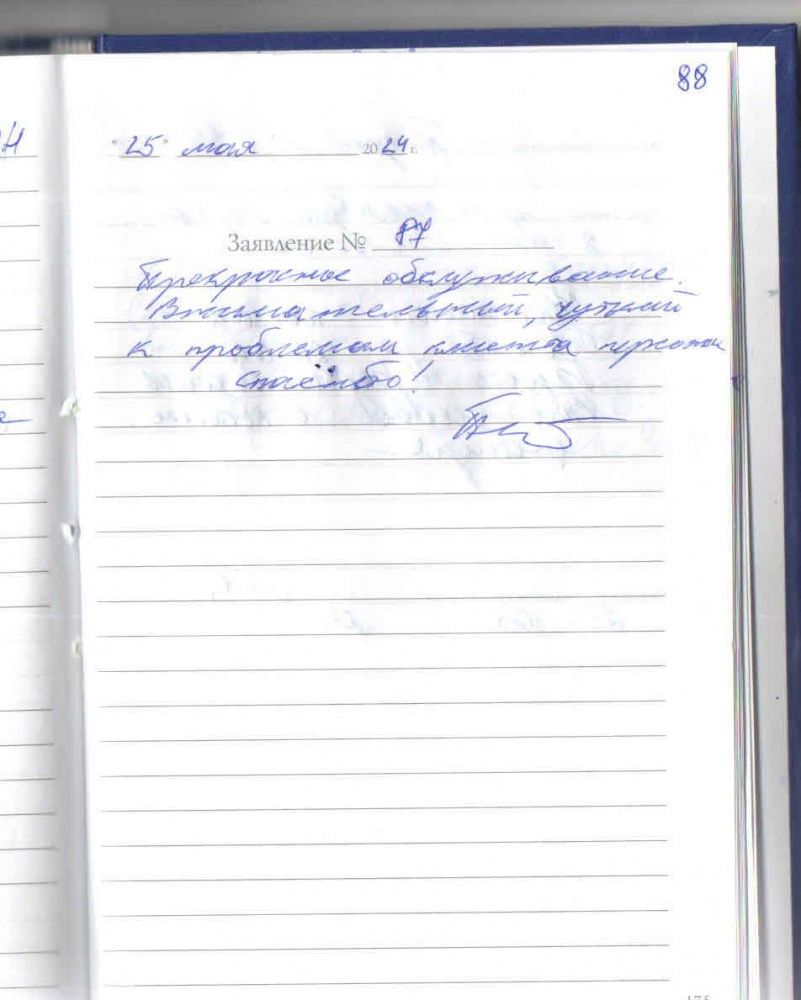 88
"25" мая 2024 г.
Заявление № 87
Прекрасное обслуживание.
Внимательный, чуткий
к проблемам клиента персонал
Спасибо!
175